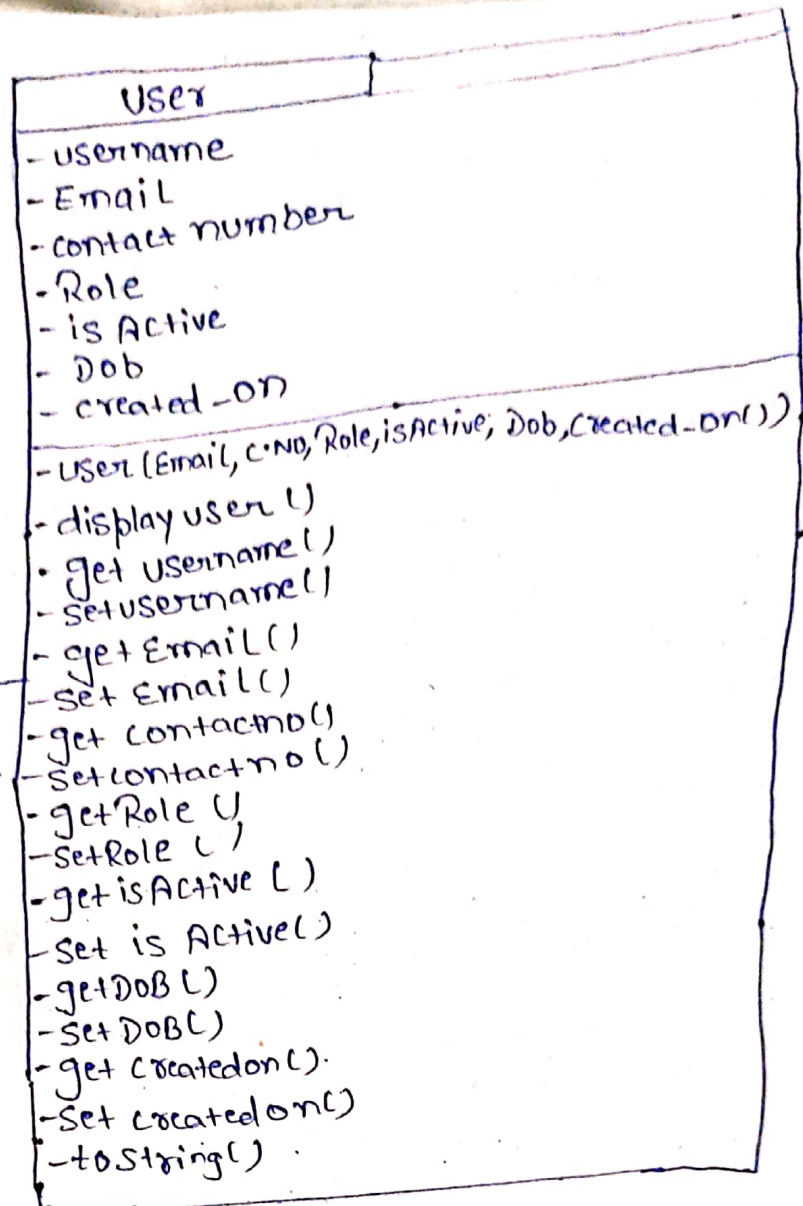 User
- username
- Email
- contact number
- Role
- is Active
- Dob
- created_on
- User (Email, C.NO, Role, isActive, Dob, Created_on())
- display user ()
- get username()
- setusername()
- get Email()
- set Email()
- get contactno()
- setcontactno()
- getRole ()
- setRole ()
- get isActive ()
- set is Active()
- getDOB ()
- set DOB()
- get createdon().
- set createdon()
- toString()